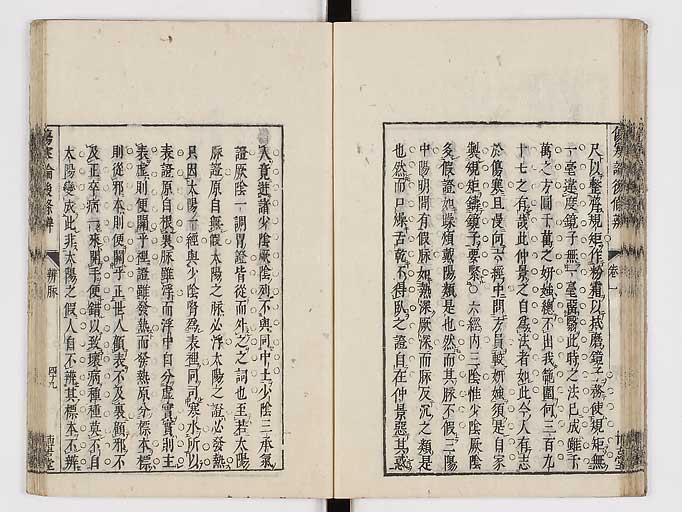 尺以整齊規矩作粉霜以拭磨鏡子務使規矩無
一毫違度鏡子無一毫翳此時之法已成雖千
萬之方圓千萬之妍媸總不出我範圍何三百九
十七之有哉此仲景之自爲法者如此今人有志
於傷寒且慢向六經中問方員較妍媸須是自家
製規矩鑄鏡子要緊六經內三陰惟少陰厥陰
多假證如躁煩戴陽類是也然而其脉不假三陽
中陽明間有假脉如熱深厥深而脉反沉之類是
也然而口燥舌乾不得臥之證自在仲景惡其惑
人竟進諸少陰厥陰列不與同中土少陰三承氣
證厥陰一調胃證皆從而外之之詞也至若太陽
脉證原自無假太陽之脉必浮太陽之證必發熱
只因太陽一經與少陰腎爲表裡同司寒水所以
表證原自根裏脉雖浮而浮中自分虛實實則主
表虛則便關乎裡證雖發熱而發熱原分標本標
則從邪本則便關乎正世人顧表不及裏顧邪不
及正卒病一來開手便錯以致壞病種種莫不自
太陽變成此非太陽之假人自不辨其標本不辨
傷寒論後條辨
辨脉
四十九
卷一